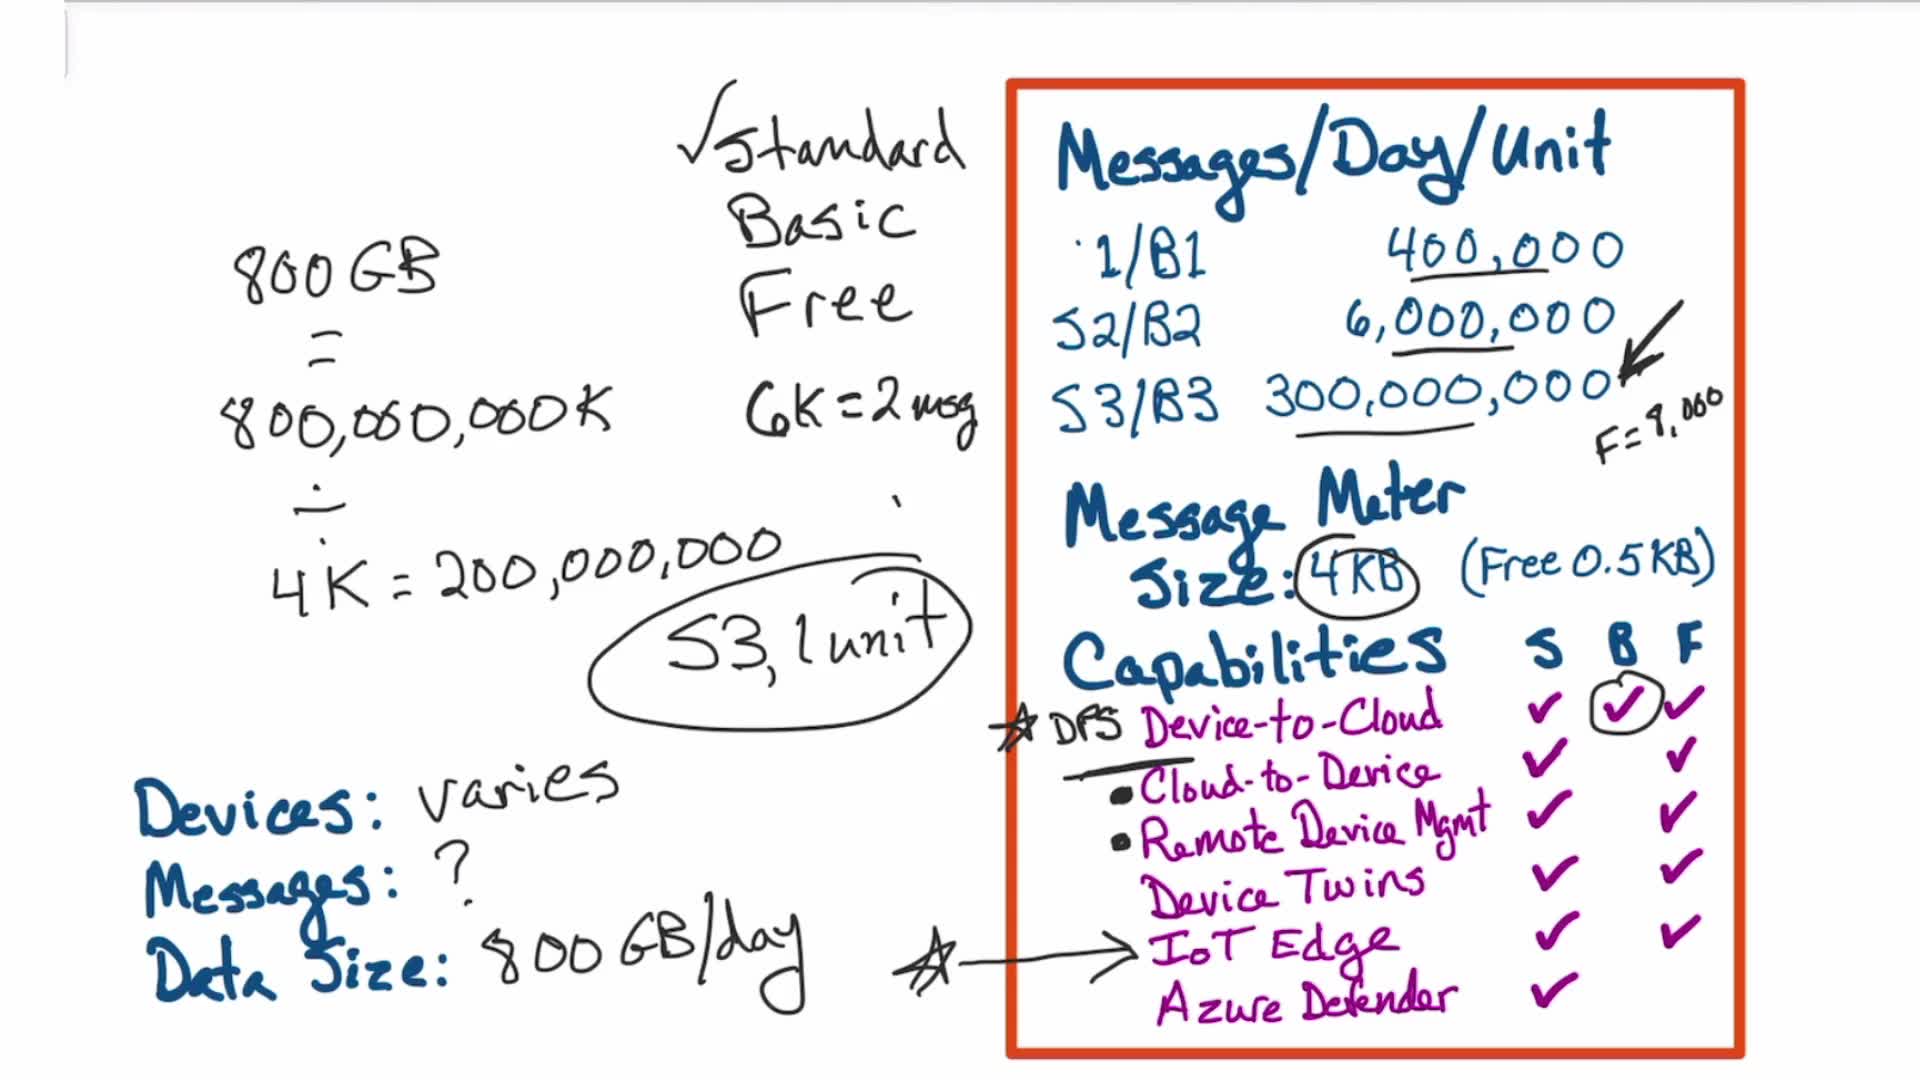 800 GB
=
800,000,000K
÷
4K = 200,000,000
S3, 1 unit
✓Standard
Basic
Free
6K = 2 msg
Devices: varies
Messages: ?
Data Size: 800 GB/day
Messages/Day/Unit
1/B1 400,000
S2/B2 6,000,000
S3/B3 300,000,000
F=8,000
Message Meter
Size: 4KB (Free 0.5KB)
Capabilities S B F
DPS Device-to-Cloud ✓ ✓ ✓
• Cloud-to-Device ✓ ✓
• Remote Device Mgmt ✓ ✓
Device Twins ✓ ✓
IoT Edge ✓ ✓
Azure Defender ✓